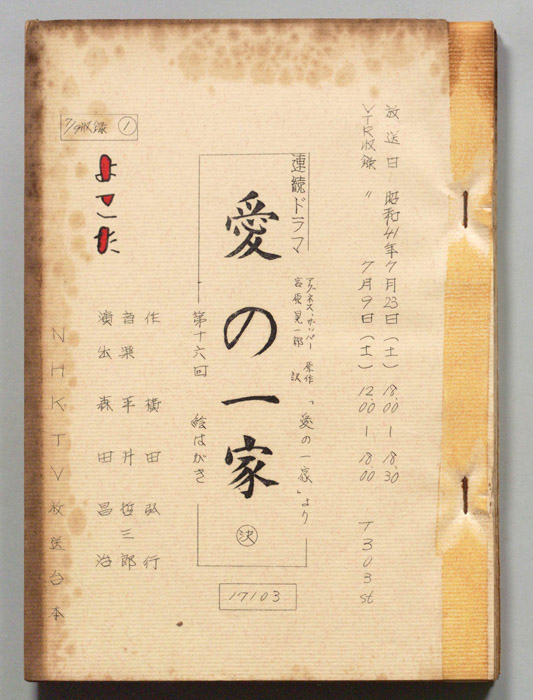 放送日 昭和41年7月23日(土) 18.00ー18.30
VTR収録 〃 7月9日(土) 12.00ー18.00 T303st
連続ドラマ
アグネス・ザッパー 原作
宮原晃一郎 訳
「愛の一家」より
愛の一家 決
第十六回 絵はがき
17103
作 横田弘行
音楽 平井哲三郎
演出 森田昌治
7/9収録 1
NHKTV放送台本